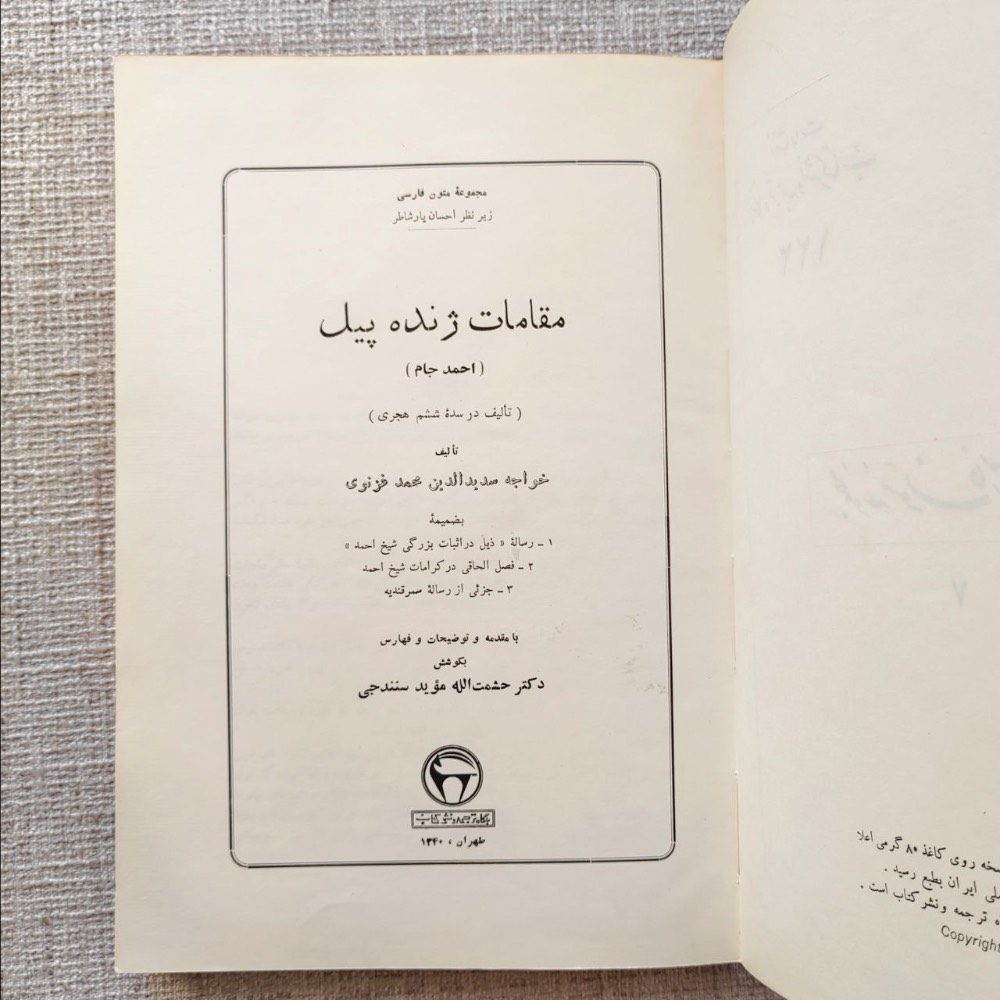 مجموعهٔ متون فارسی
زیر نظر احسان یارشاطر
مقامات ژنده پیل
( احمد جام )
( تألیف در سدهٔ ششم هجری )
تألیف
خواجه سدیدالدین محمد غزنوی
بضمیمهٔ
۱ - رسالهٔ « ذیل در اثبات بزرگی شیخ احمد »
۲ - فصل الحاقی در کرامات شیخ احمد
۳ - جزئی از رسالهٔ سمرقندیه
با مقدمه و توضیحات و فهارس
بکوشش
دکتر حشمت‌الله مؤید سنندجی
بنگاه ترجمه و نشر کتاب
طهران ، ۱۳۴۰
۱۶۶
۷
روی کاغذ ۸۰ گرمی اعلا
ملی ایران بطبع رسید .
ترجمه و نشر کتاب است .
Copyright